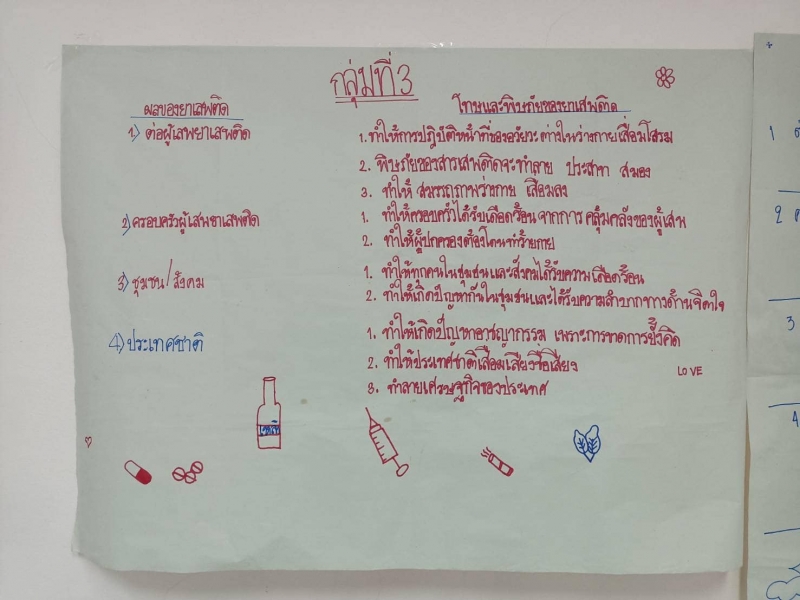 กลุ่มที่ 3
ผลของยาเสพติด
โทษและพิษภัยของยาเสพติด
1) ต่อผู้เสพยาเสพติด
1. ทำให้การปฏิบัติหน้าที่ของอวัยวะต่างในร่างกายเสื่อมโสรม
2. พิษภัยของสารเสพติดจะทำลาย ประสาท สมอง
3. ทำให้ สมรรถภาพร่างกาย เสื่อมลง
2) ครอบครัวผู้เสพยาเสพติด
1. ทำให้ครอบครัวได้รับเดือดร้อน จากการ คลุ้มคลั่งของผู้เสพ
2. ทำให้ผู้ปกครองต้องโดนทำร้ายกาย
3) ชุมชน/สังคม
1. ทำให้ทุกคนในชุมชนและสังคมได้รับความเดือดร้อน
2. ทำให้เกิดปัญหากันในชุมชนและได้รับความลำบากทางด้านจิตใจ
4) ประเทศชาติ
1. ทำให้เกิดปัญหาอาชญากรรม เพราะการขาดการยั้งคิด
2. ทำให้ประเทศชาติเสื่อมเสียงชื่อเสียง
3. ทำลายเศรษฐกิจของประเทศ
LOVE
1
2
3
4